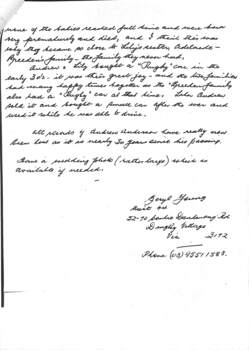 none of the babies reached full term and were born
very prematurely and died, and I think this was
why they became so close to Lily's sister, Adelaide
Breeden's family - the family they never had.
Andrew & Lily bought a "Rugby" car in the
early 30's. it was their great joy - and the two families
had many happy times together as the Breeden family
also had a "Rugby" car at that time. Later Andrew
sold it and bought a small car after the war and
used it while he was able to drive.
All friends of Andrew Anderson have really now
been lost as it is nearly 30 years since his passing.
Have a wedding photo (rather large) which is
available if needed.
Beryl Young
Unit
Dandenong Rd
Dingley Village
Vic 3172
Phone (03) 9551